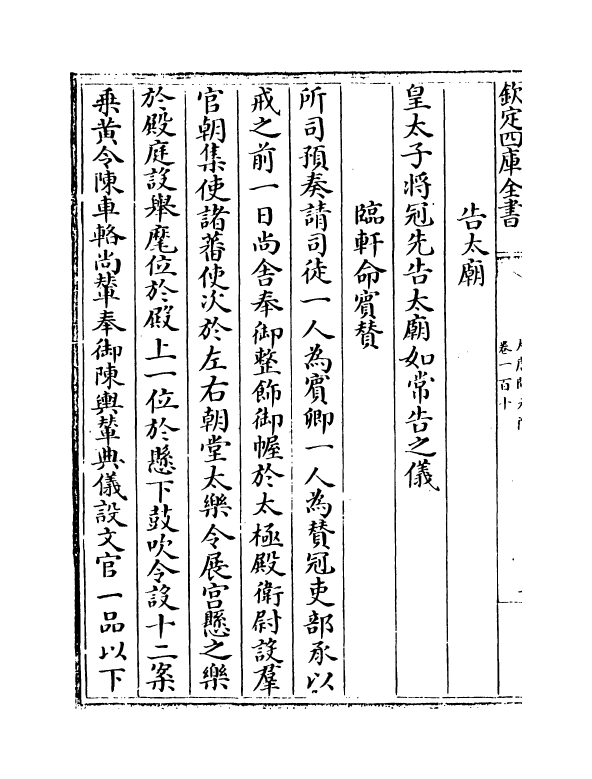 欽定四庫全書
卷一百十
告太廟
皇太子將冠先告太廟如常告之儀
臨軒命賓贊
所司預奏請司徒一人為賓卿一人為贊冠吏部承以
戒之前一日尚舍奉御整飾御幄於太極殿衛尉設羣
官朝集使諸蕃使次於左右朝堂太樂令展宮懸之樂
於殿庭設舉麾位於殿上一位於懸下鼓吹令設十二案
乘黃令陳車輅尚輦奉御陳輿輦典儀設文官一品以下